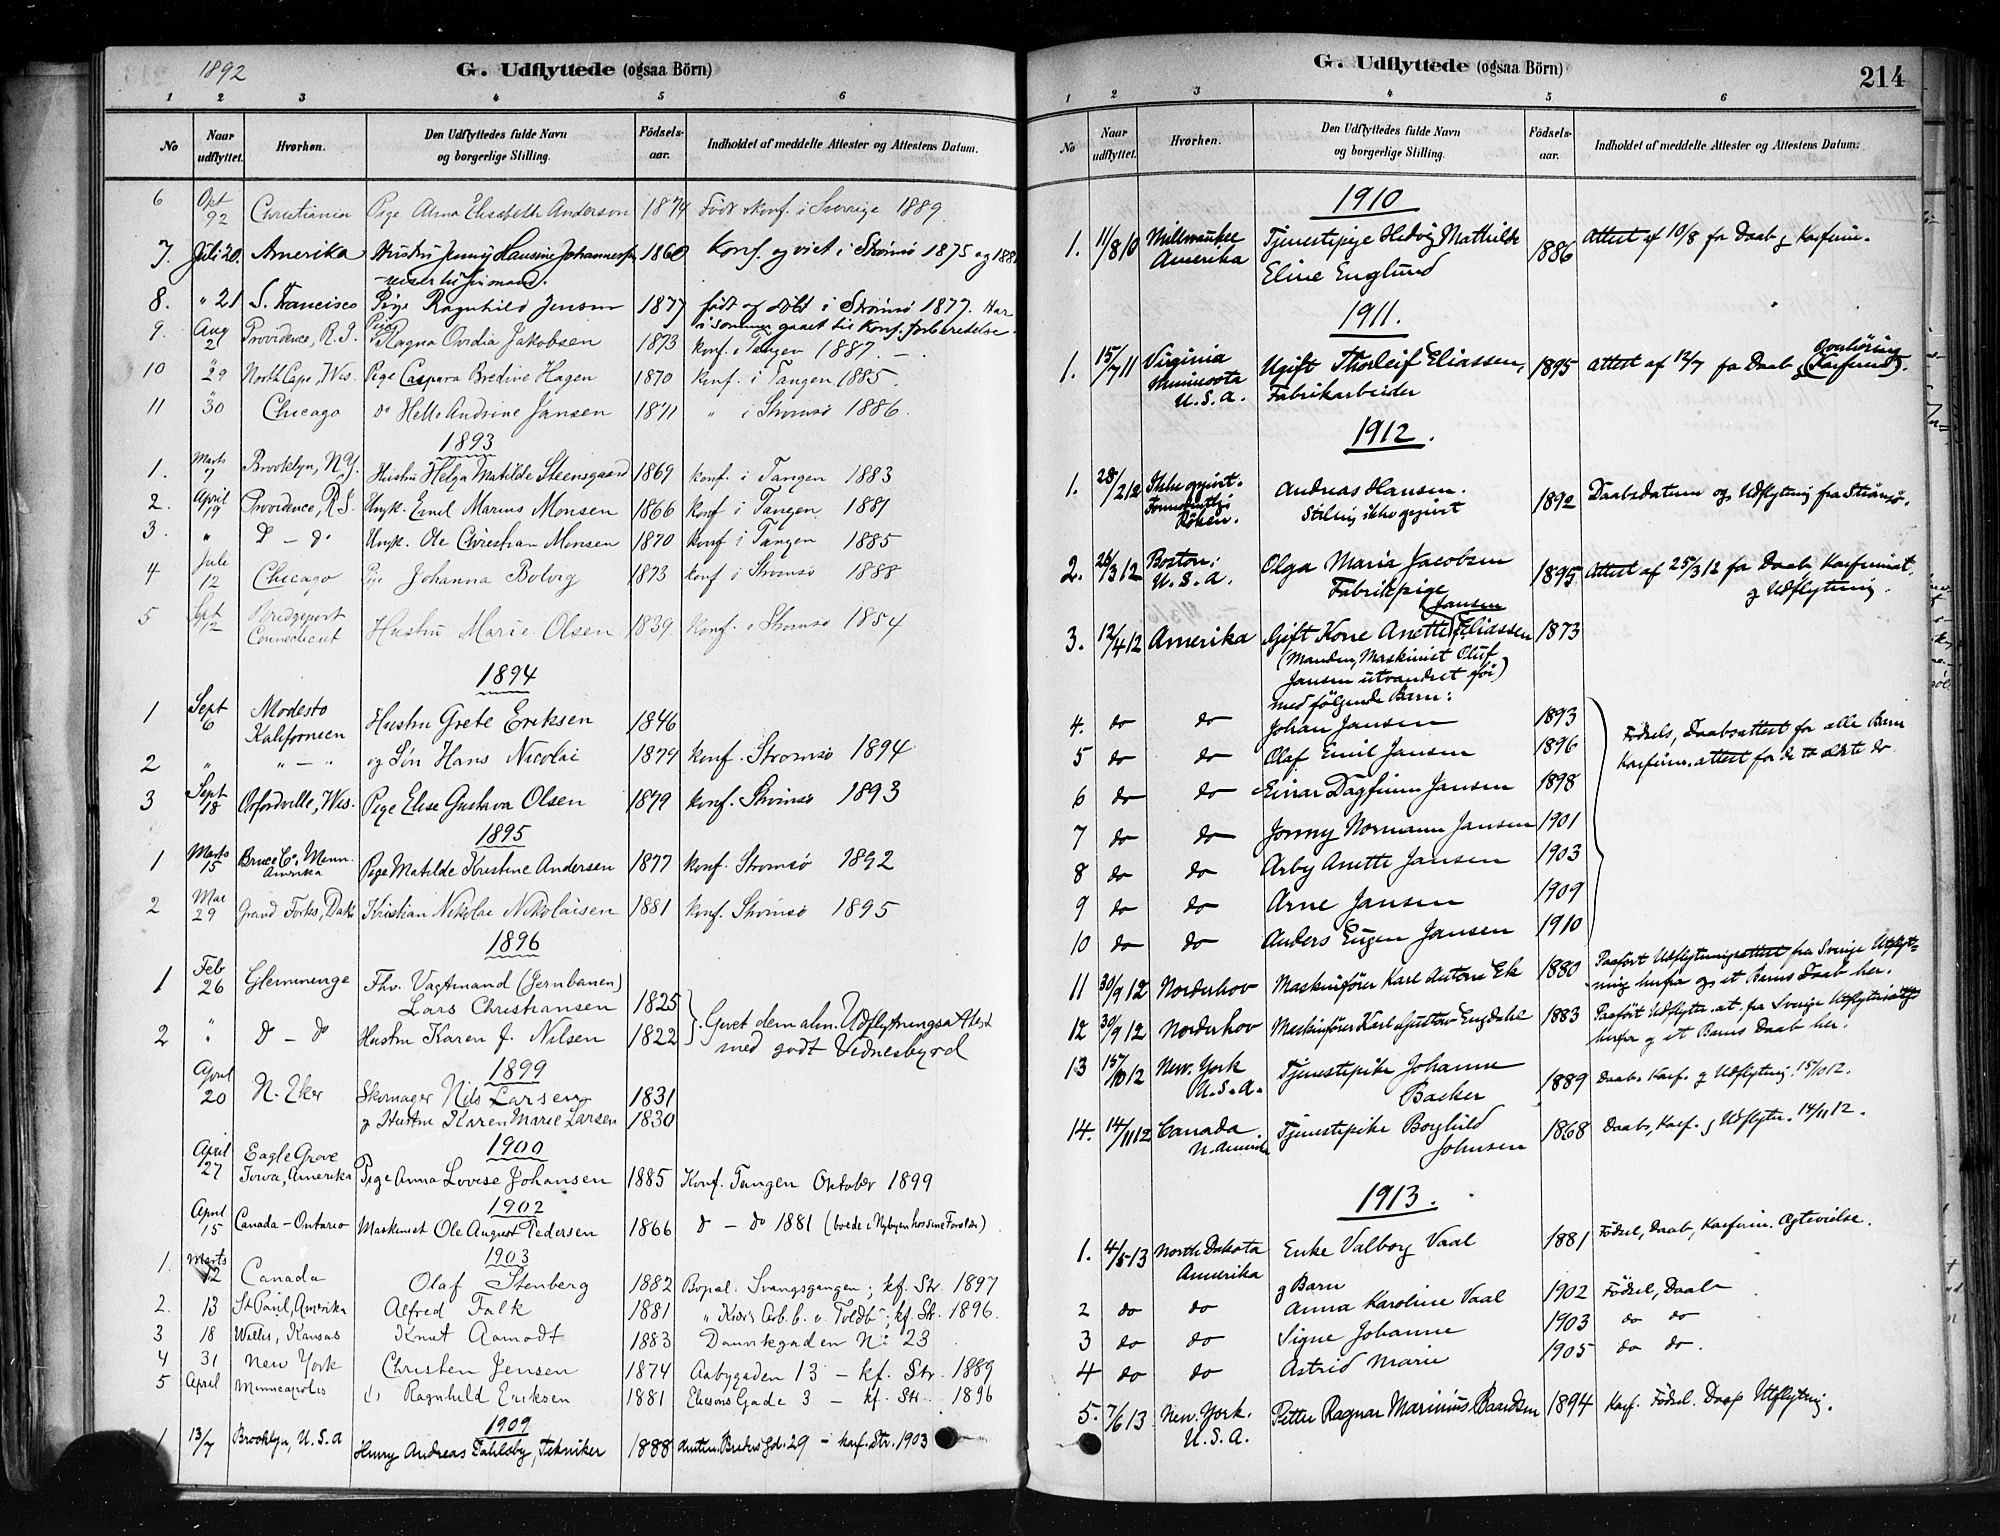 1892
G. Udflyttede (ogsaa Börn)
1 2 3 4 5 6
No Naar udflyttet. Hvorhen. Den Udflyttedes fulde Navn og borgerlige Stilling. Födsels-aar. Indholdet af meddelte Attester og Attestens Datum.
6 Oct 92 Christiania Pige Anna Elisabeth Anderson 1874 Født & konf. i Sverrige 1889.
7. Juli 20. Amerika Hustru Jenny Hansine Johannessen 1860 Konf. og viet i Strømsø 1875 og 188
reiser til sin mand.
8. " 21 S. Francisco Pige Ragnhild Jensen 1877 født og døbt i Strømsø 1877. Har
i sommer gaaet til Konf. forberedelse
9. Aug 2 Providence, R.I. Pige Ragna Ovidia Jakobsen 1873 konf. i Tangen 1887. –
10 " 29 North Cape, Wis. Pige Caspara Bredine Hagen 1870 konf. i Tangen 1885.
11 " 30 Chicago do Helle Andrine Jansen 1871 " i Strømsø 1886.
1893
1. Marts 7 Brooklyn, N.Y. Hustru Helga Matilde Steensgaard 1869 konf. i Tangen 1883
2. April 19 Providence, R.I. Ungk. Emil Marius Monsen 1866 konf i Tangen 1881
3. " do – do Ungk. Ole Christian Monsen 1870 konf i Tangen 1885
4 Juli 12 Chicago Pige Johanna Bolvig 1873 konf i Strømsø 1888
5 Sept 12 Bredgeport Connecticut Hustru Marie Olsen 1839 konf. i Strømsø 1854
1894
1 Sept 6 Modesto Kaliforneen Hustru Grete Eriksen 1846
2 " " – " og Søn Hans Nicolai 1879 konf. Strømsø 1894
3 Sept 18 Orfordville, Wis. Pige Elise Gustava Olsen 1879 konf. Strømsø 1893
1895
1 Marts 15 Bruce Co. Menn. Amerika Pige Matilde Kristine Andersen 1877 konf. Strømsø 1892
2 Mai 29 Grand Forks, Dak. Kristian Nikolai Nikolaisen 1881 konf. Strømsø 1895
1896
1 Feb 26 Glemminge Fhv. Vagtmand (Jernbanen)
Lars Christiansen 1825
2 " do – do Hustru Karen J. Nilsen 1822 Givet dem alm. Udflytningsattest
med godt Vidnesbyrd
1899
April 20 N. Eker Skomager Nils Larsen 1831
og Hustru Karen Marie Larsen 1830
1900
April 27 Eagle Grove Iowa, Amerika Pige Anna Lovise Johansen 1885 Konf. Tangen Oktober 1899
1902
April 15 Canada – Ontario Maskinist Ole August Pedersen 1866 do – do 1881 (boede i Nybyen hos sine Foreldre)
1903
1. Marts 12 Canada Olaf Stenberg 1882 Bopæl. Svangsgangen; kf. Str. 1897
2. 13 St Paul, Amerika Alfred Falk 1881 " ; kf. Str. 1896.
3 18 Willis, Kansas Knut Aamodt 1883 Danvikgaden No: 23
4 31 New York Christen Jensen 1874 Aabygaden 13 – kf. Str. 1889
5 April Minneapolis Ragnhild Eriksen 1881 Gade 3 – kf. Str. 1896
1909
1 13/7 Brooklyn, U.S.A Henry Andreas Dahlsby, Tekniker 1888 29 – konf. Str. 1903
G. Udflyttede (ogsaa Börn)
214
1 2 3 4 5 6
No Naar udflyttet. Hvorhen. Den Udflyttedes fulde Navn og borgerlige Stilling. Födsels-aar. Indholdet af meddelte Attester og Attestens Datum.
1910
1. 11/8 10 Millwaukee Amerika Tjenestepige Hedvig Mathilde
Eline Englund 1886 Attest af 10/8 for Daab og Konfirm.
1911.
1. 15/7 11 Virginia Minnisota U.S.A. Ugift Thorleif Eliassen,
Fabrikarbeider 1895 Attest af 12/7 for Daab og (Konfirmd).
1912.
1. 28/2 12 Ikke opgivet. Formodentlig: Røken. Andreas Hansen.
Stilling ikke opgivet 1892 Daabsdatum og Udflytning fra Strømsø.
2. 26/3 12 Boston: U.S.A. Olga Maria Jacobsen
Fabrikpige 1895 Attest af 25/3 12 for Daab, Konfirmat.
og Udflytning.
3. 12/4 12 Amerika Gift Kone Anette (Jansen) Eliassen 1873
(Manden, Maskinist Oluf
Jansen utvandret før)
med følgende Barn:
4. do do Johan Jansen 1893
5 do do Olaf Emil Jansen 1896
6 do do Einar Dagfinn Jansen 1898
7 do do Jonny Normann Jansen 1901
8 do do Arby Anette Jansen 1903
9 do do Arne Jansen 1909
10 do do Anders Eugen Jansen 1910
Fødsels, Daabsattest for alle Barn
Konfirm. attest for de to ældste do
11 30/9 12 Norderhov Maskinfører Karl Anton Ek 1880 Paaført Udflytningsattest fra Sverige Utflyt-
ning herfra og et Barns Daab her.
12 30/9 12 Norderhov Maskinfører Karl Gustav Engdahl 1883 Paaført Udflytn. at. fra Sverige
herfra og et Barns Daab her.
13 15/10 12 New. York U.S.A. Tjenestepike Johanne
Backer 1889 Daab. Konf. og Udflytning. 15/10 12.
14. 14/11 12 Canada N. Amerika Tjenestepike Borghild
Johnsen 1868 Daab, Konf. og Udflytn. 14/11 12.
1913.
1. 4/5 13 North Dakota Amerika Enke Valborg Vaal 1881 Fødsel, Daab, Konfirm. Egtevielse.
og Barn
2 do do Anna Karoline Vaal 1902 Fødsel, Daab
3 do do Signe Johanne 1903 do do
4 do do Astrid Marie 1905 do do.
5. 7/6 13 New. York. U.S.A. Petter Ragnar Marinius Baardsen 1894 Konf. Fødsel. Daab Utflytning.